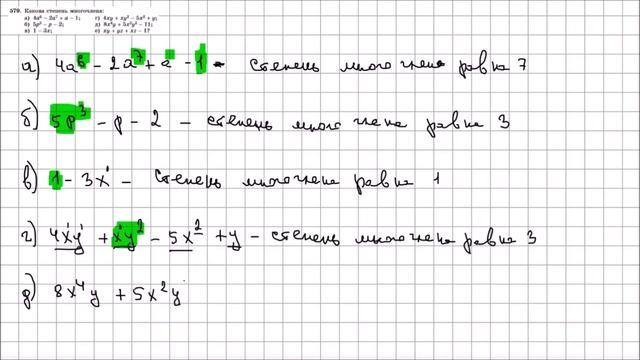 579. Какова степень многочлена:
а) 4a⁶ − 2a⁷ + a − 1; г) 4xy + xy² − 5x² + y;
б) 5p³ − p − 2; д) 8x⁴y + 5x²y³ − 11;
в) 1 − 3x; е) xy + yz + xz − 1?
а) 4a⁶ − 2a⁷ + a¹ − 1 - степень многочлена равна 7
б) 5p³ − p − 2 - степень многочлена равна 3
в) 1 − 3x¹ - степень многочлена равна 1
г) 4x¹y¹ + x¹y² − 5x² + y - степень многочлена равна 3
д) 8x⁴y + 5x²y